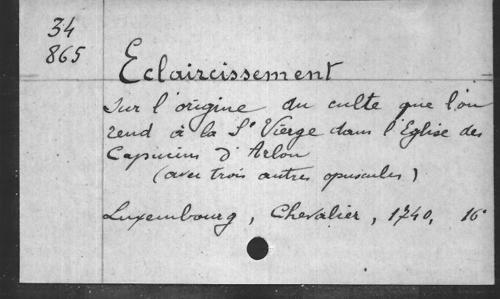 34
865
Eclaircissement
sur l'origine du culte que l'on
rend à la Ste Vierge dans l'Eglise des
Capucins d'Arlon
(avec trois autres opuscules)
Luxembourg, Chevalier, 1740, 16°